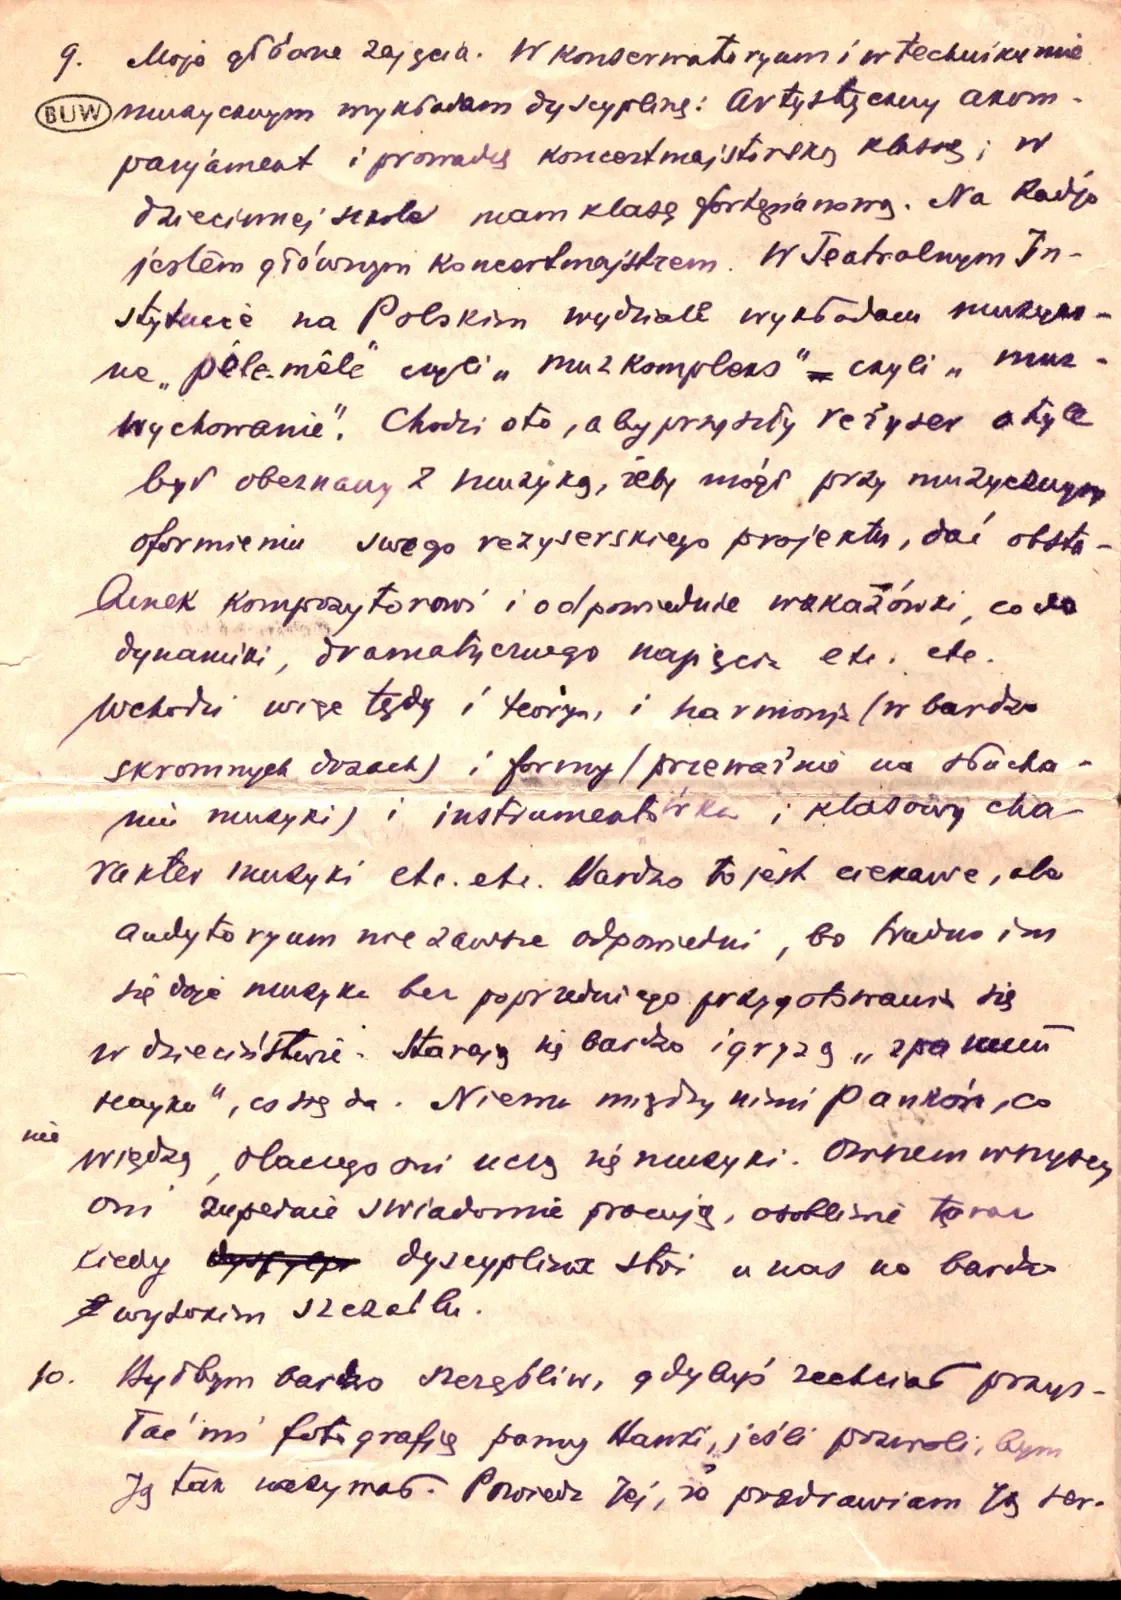 9. Moje główne zajęcia. W Konserwatoryum i w technikumie
BUW muzycznym wykładam dyscyplinę: Artystyczny akom-
panjament i prowadzę koncertmajsterską klasę; w
dziecinnej szkole mam klasę fortepianową. Na Radjo
jestem głównym koncertmajstrem. W Teatralnym In-
stytucie na Polskim wydziale wykładam muzycz-
ne „pêle-mêle" czyli „muzkompleks" – czyli „muz-
wychowanie". Chodzi oto, aby przyszły reżyser o tyle
był obeznany z muzyką, żeby mógł przy muzycznym
oformieniu swego reżyserskiego projektu, dać obsta-
lunek kompozytorowi i odpowiednie wskazówki, co do
dynamiki, dramatycznego napięcia etc. etc.
Wchodzi więc tędy i teorya, i harmonja (w bardzo
skromnych dozach) i formy (przeważnie na słucha-
niu muzyki) i instrumentówka i klasowy cha-
rakter muzyki etc. etc. Bardzo to jest ciekawe, ale
audytoryum nie zawsze odpowiedni, bo trudno im
się daje muzyka bez poprzedniego przygotowania się
w dzieciństwie. Starają się bardzo i gryzą „
nauka", co się da. Niema między nimi Panków, co
nie wiedzą, dlaczego oni uczą się muzyki. Owszem wszyscy
oni zupełnie swiadomie pracują, osobliwie teraz
kiedy dyscyplina stoi u nas na bardzo
wysokim szczeblu.
10. Byłbym bardzo szczęśliw, gdybyś zechciał przys-
łać mi fotografję pany Hanki, jeśli pozwoli, bym
Ją tak nazywał. Powiedz Jej, że pozdrawiam Ją ser-